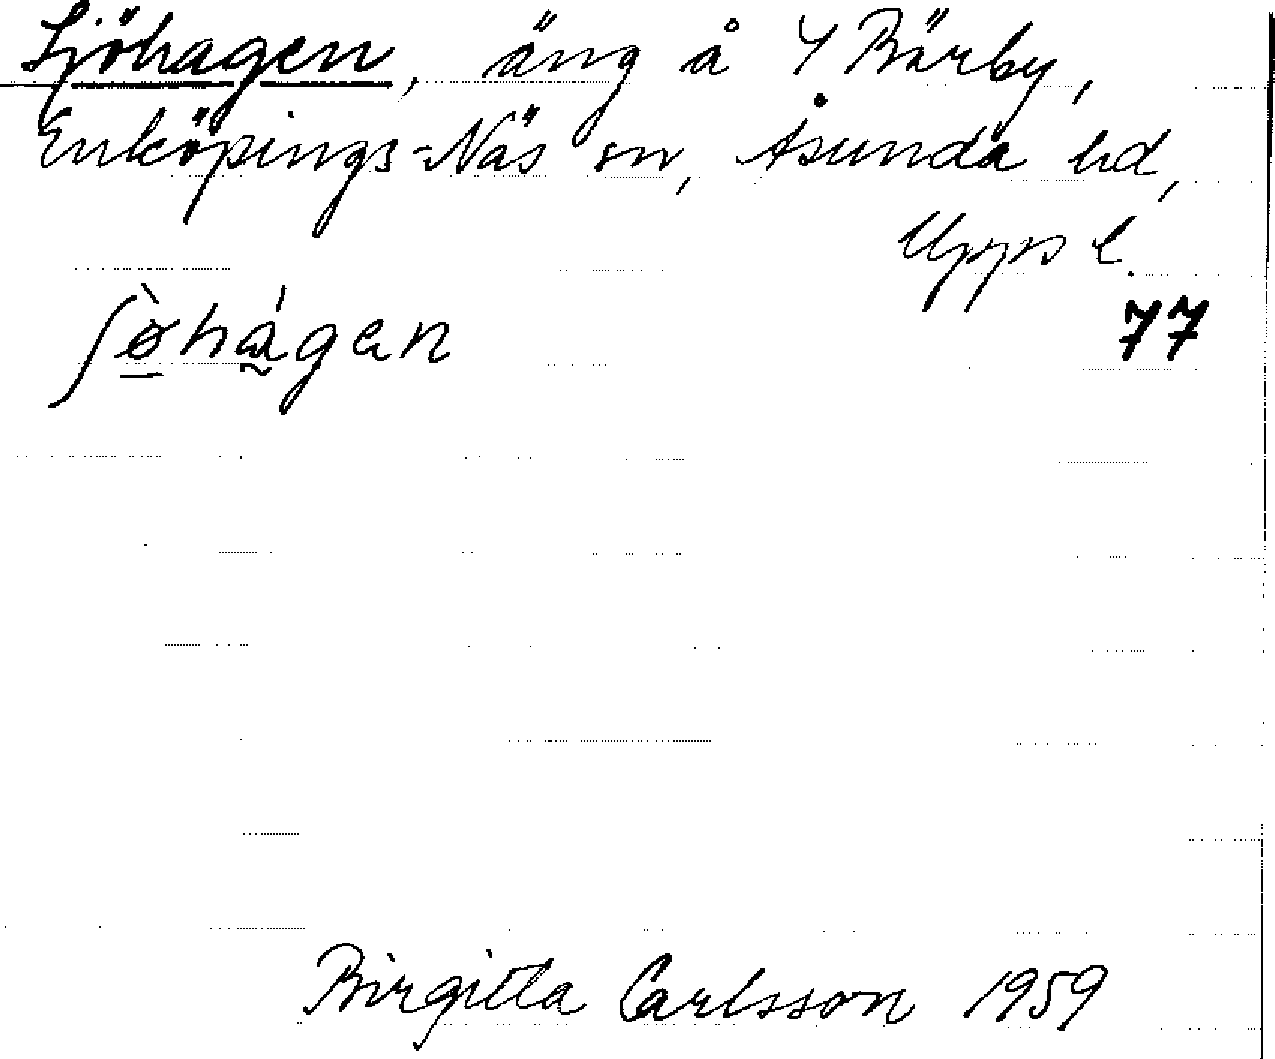 Sjöhagen, äng å Y Bärby,
Enköpings-Näs sn, Åsunda hd,
Upps l.
ʃö̀hágen
77
Birgitta Carlsson 1959